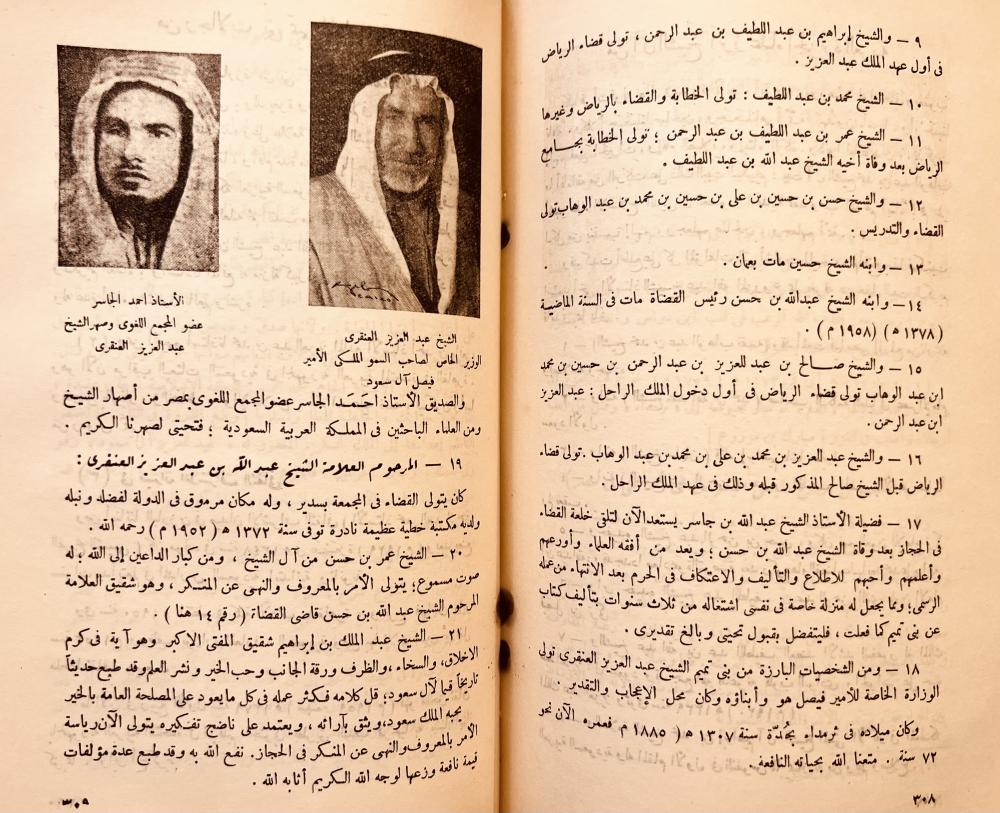 ٩ — والشيخ إبراهيم بن عبد اللطيف بن عبد الرحمن ، تولى قضاء الرياض
فى أول عهد الملك عبد العزيز .
١٠ — الشيخ محمد بن عبد اللطيف : تولى الخطابة والقضاء بالرياض وغيرها
١١ — الشيخ عمر بن عبد اللطيف بن عبد الرحمن ؛ تولى الخطابة بجامع
الرياض بعد وفاة أخيه الشيخ عبد الله بن عبد اللطيف .
١٢ — والشيخ حسن بن حسين بن على بن حسين بن محمد بن عبد الوهاب تولى
القضاء والتدريس .
١٣ — وابنه الشيخ حسين مات بعمان .
١٤ — وابنه الشيخ عبدالله بن حسن رئيس القضاة مات فى السنة الماضية
( ١٣٧٨ ه ) ( ١٩٥٨ م ) .
١٥ — والشيخ صالح بن عبد للعزيز بن عبد الرحمن بن حسين بن محمد
ابن عبد الوهاب تولى قضاء الرياض فى أول دخول الملك الراحل : عبد العزيز
ابن عبد الرحمن .
١٦ — والشيخ عبد العزيز بن محمد بن على بن محمد بن عبد الوهاب . تولى قضاء
الرياض قبل الشيخ صالح المذكور قبله وذلك فى عهد الملك الراحل .
١٧ — فضيلة الأستاذ الشيخ عبد الله بن جاسر يستعد الآن لتلقى خلعة القضاء
فى الحجاز بعد وفاة الشيخ عبد الله بن حسن ؛ ويعد من أفقه العلماء وأورعهم
وأعلمهم وأحبهم للاطلاع والتأليف والاعتكاف فى الحرم بعد الانتهاء من عمله
الرسمى؛ ومما يجعل له منزلة خاصة فى نفسى اشتغاله من ثلاث سنوات بتأليف كتاب
عن بنى تميم كما فعلت ، فليتفضل بقبول تحيتى وبالغ تقديرى .
١٨ — ومن الشخصيات البارزة من بنى تميم الشيخ عبد العزيز العنقرى تولى
الوزارة الخاصة للأمير فيصل هو وأبناؤه وكان محل الإعجاب والتقدير .
وكان ميلاده فى ثرمداء بنجد سنة ١٣٠٧ ه ( ١٨٨٥ م فعمره الآن نحو
٧٢ سنة . متعنا الله بحياته النافعة .
٣٠٨
الأستاذ احمد الجاسر
عضو المجمع اللغوى وصهر الشيخ
عبد العزيز العنقرى
الشيخ عبد العزيز العنقرى
الوزير الخاص لصاحب السمو الملكى الأمير
فيصل آل سعود
والصديق الأستاذ احمد الجاسر عضو المجمع اللغوى بمصر من أصهار الشيخ
ومن العلماء الباحثين فى المملكة العربية السعودية ؛ فتحيتى لصهرنا الكريم .
١٩ — المرحوم العلامة الشيخ عبد الله بن عبد العزيز العنقرى :
كان يتولى القضاء فى المجمعة بسدير ، وله مكان مرموق فى الدولة لفضله ونبله
ولديه مكتبة خطية عظيمة نادرة توفى سنة ١٣٧٢ ه ( ١٩٥٢ م ) رحمه الله .
٢٠ — الشيخ عمر بن حسن من آل الشيخ ، ومن كبار الداعين إلى الله ؛ له
صوت مسموع ؛ يتولى الأمر بالمعروف والنهى عن المنكر ، وهو شقيق العلامة
المرحوم الشيخ عبد الله بن حسن قاضى القضاة ( رقم ١٤ هنا ) .
٢١ — الشيخ عبد الملك بن إبراهيم شقيق المفتى الاكبر وهو آية فى كرم
الاخلاق ، والسخاء ، والظرف ورقة الجانب وحب الخير ونشر العلم وقد طبع حديثاً
تاريخاً قيما لآل سعود ؛ قل كلامه فكثر عمله فى كل ما يعود على المصلحة العامة بالخير
يحبه الملك سعود، ويثق بآرائه ، ويعتمد على ناضج تفكيره يتولى الآن رياسة
الأمر بالمعروف والنهى عن المنكر فى الحجاز. نفع الله به وقد طبع عدة مؤلفات
قيمة نافعة وزعها لوجه الله الكريم أثابه الله .
٣٠٩